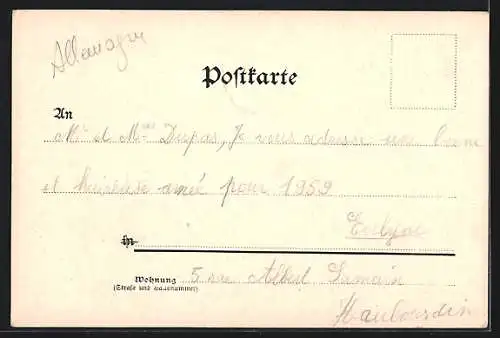 Allemagne
Postkarte
An
Mr et Mme Dupas, Je vous adresse une bonne
et heureuse année pour 1959
in
Wohnung
5 rue Albert Samain
(Straße und Hausnummer)
Haubourdin